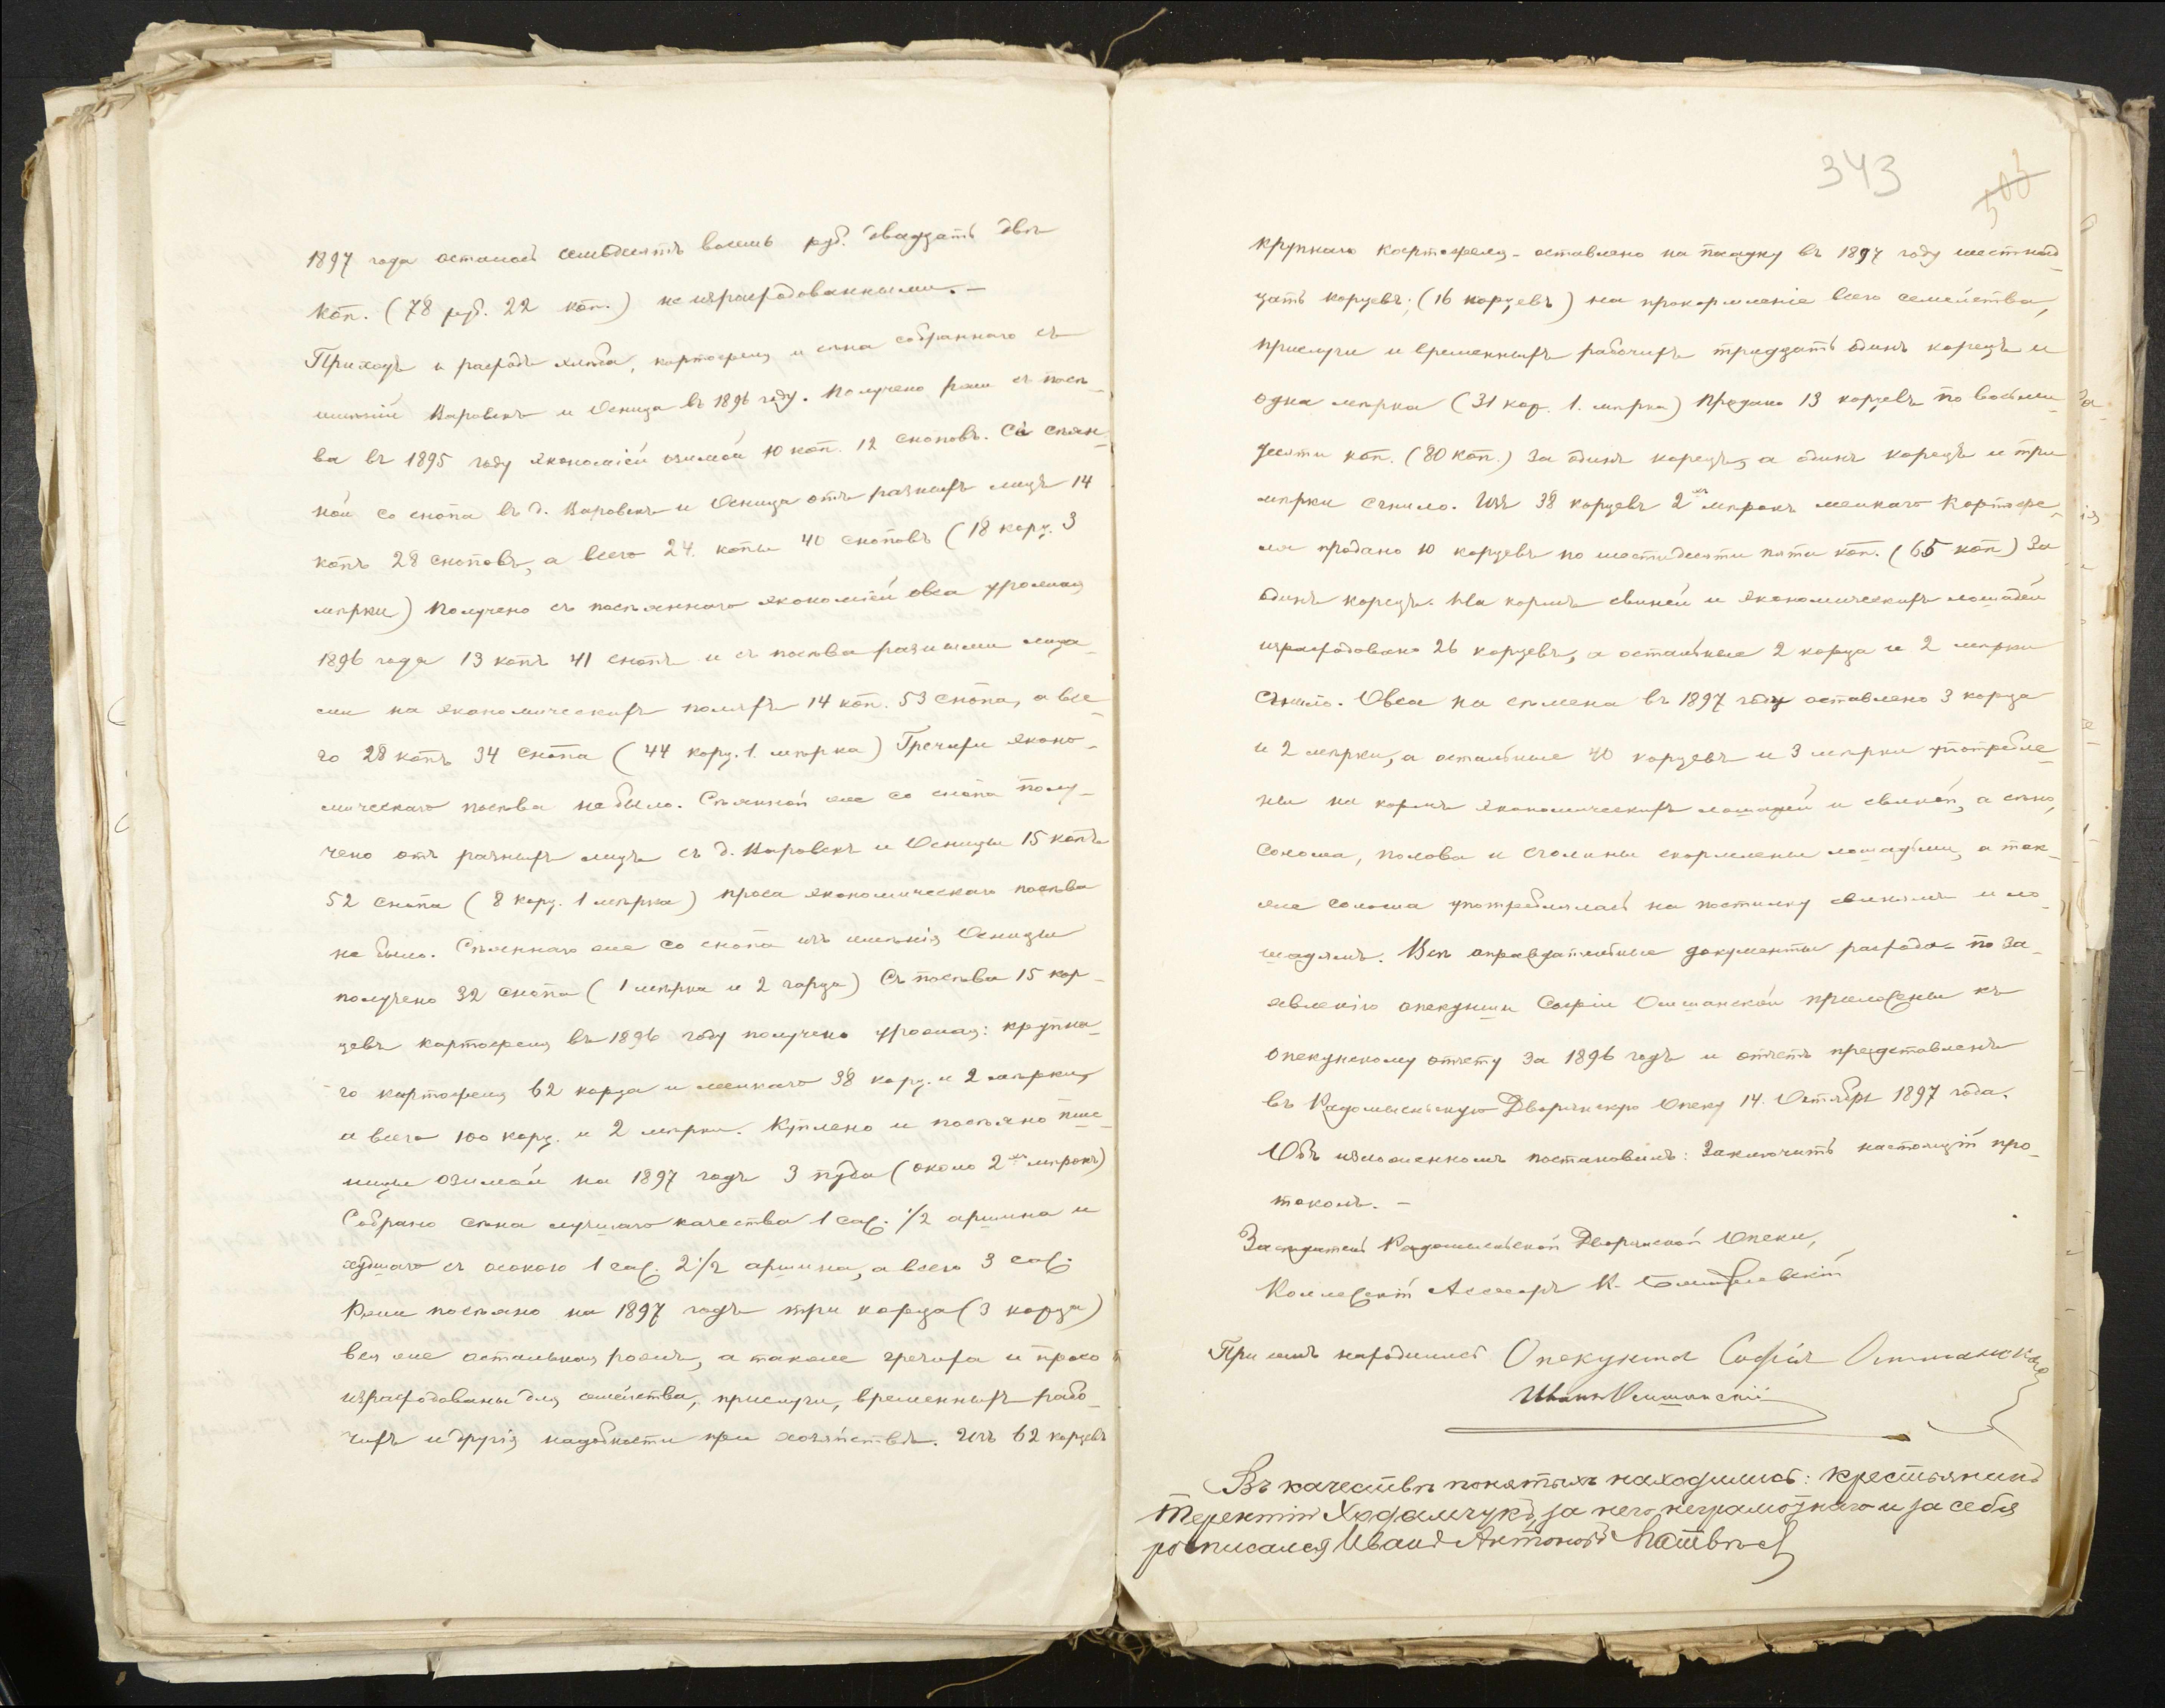 1897 года осталось семьдесятъ восемь руб. двадцать двѣ
коп. (78 руб. 22 коп.) не израсходованными. –
Приходъ и расходъ хлѣба, картофеля и сѣна собраннаго съ
имѣній Варовскъ и Осница въ 1896 году. Получено ржи съ посѣ-
ва въ 1895 году экономіей озимой 10 коп. 12 сноповъ. Съ сѣян-
ной со снопа въ д. Варовскъ и Осница отъ разныхъ лицъ 14
копъ 28 сноповъ, а всего 24 копы 40 сноповъ (18 корц. 3
мѣрки) Получено съ посѣяннаго экономіей овса урожая
1896 года 13 копъ 41 снопъ и съ посѣва разными лица-
ми на экономическихъ поляхъ 14 коп. 53 снопа, а все-
го 28 копъ 34 снопа (44 корц. 1 мѣрка) Гречихи эконо-
мическаго посѣва не было. Сѣянной же со снопа полу-
чено отъ разныхъ лицъ съ д. Варовскъ и Осницы 15 копъ
52 снопа (8 корц. 1 мѣрка) проса экономическаго посѣва
не было. Сѣяннаго же со снопа изъ имѣнія Осницы
получено 32 снопа (1 мѣрка и 2 гарца) Съ посѣва 15 кор-
цевъ картофеля въ 1896 году получено урожая: крупна-
го картофеля 62 корца и мелкаго 38 корц. и 2 мѣрки,
а всего 100 корц. и 2 мѣрки. Куплено и посѣяно пше-
ницы озимой на 1897 годъ 3 пуда (около 2хъ мѣрокъ)
Собрано сѣна лучшаго качества 1 саж. 1/2 аршина и
худшаго съ осокою 1 саж. 2 1/2 аршина, а всего 3 саж.
Ржи посѣяно на 1897 годъ три корца (3 корца)
вся же остальная рожь, а также гречиха и просо
израсходованы для семейства, прислуги, временныхъ рабо-
чихъ и другія надобности при хозяйствѣ. Изъ 62 корцевъ
343
503
крупнаго картофеля – оставлено на посадку въ 1897 году шестнад-
цать корцевъ; (16 корцевъ) на прокормленіе всего семейства,
прислуги и временныхъ рабочихъ тридцать одинъ корецъ и
одна мѣрка (31 кор. 1. мѣрка) Продано 13 корцевъ по восьми-
десяти коп. (80 коп.) за одинъ корецъ, а одинъ корецъ и три
мѣрки сгнило. Изъ 38 корцевъ 2хъ мѣрокъ мелкаго картофе-
ля продано 10 корцевъ по шестидесяти пяти коп. (65 коп) за
одинъ корецъ. На кормъ свиней и экономическихъ лошадей
израсходовано 26 корцевъ, а остальные 2 корца и 2 мѣрки
сгнило. Овса на сѣмена въ 1897 году оставлено 3 корца
и 2 мѣрки, а остальные 40 корцевъ и 3 мѣрки употребле-
ны на кормъ экономическихъ лошадей и свиней, а сѣно,
солома, полова и сголины скормлены лошадьми, а так-
же солома употреблялась на постилку свиньямъ и ло-
шадямъ. Всѣ оправдательные документы расхода – по за-
явленію опекунши Софіи Олшанской приложены къ
опекунскому отчету за 1896 годъ и отчетъ представленъ
въ Радомысльскую Дворянскую Опеку 14. Октября 1897 года.
Объ изложенномъ постановилъ: Заключить настоящій про-
токолъ. –
Засѣдатель Радомысльской Дворянской Опеки,
Коллежскій Ассесоръ К.
При семъ находились Опекунша Софія Олшанская
Иванъ Олшанскій
Въ качествѣ понятыхъ находились: крестьянинъ
Терентій Ходамчукъ, за него неграмотнаго и за себя
росписался Иванъ Антоновъ